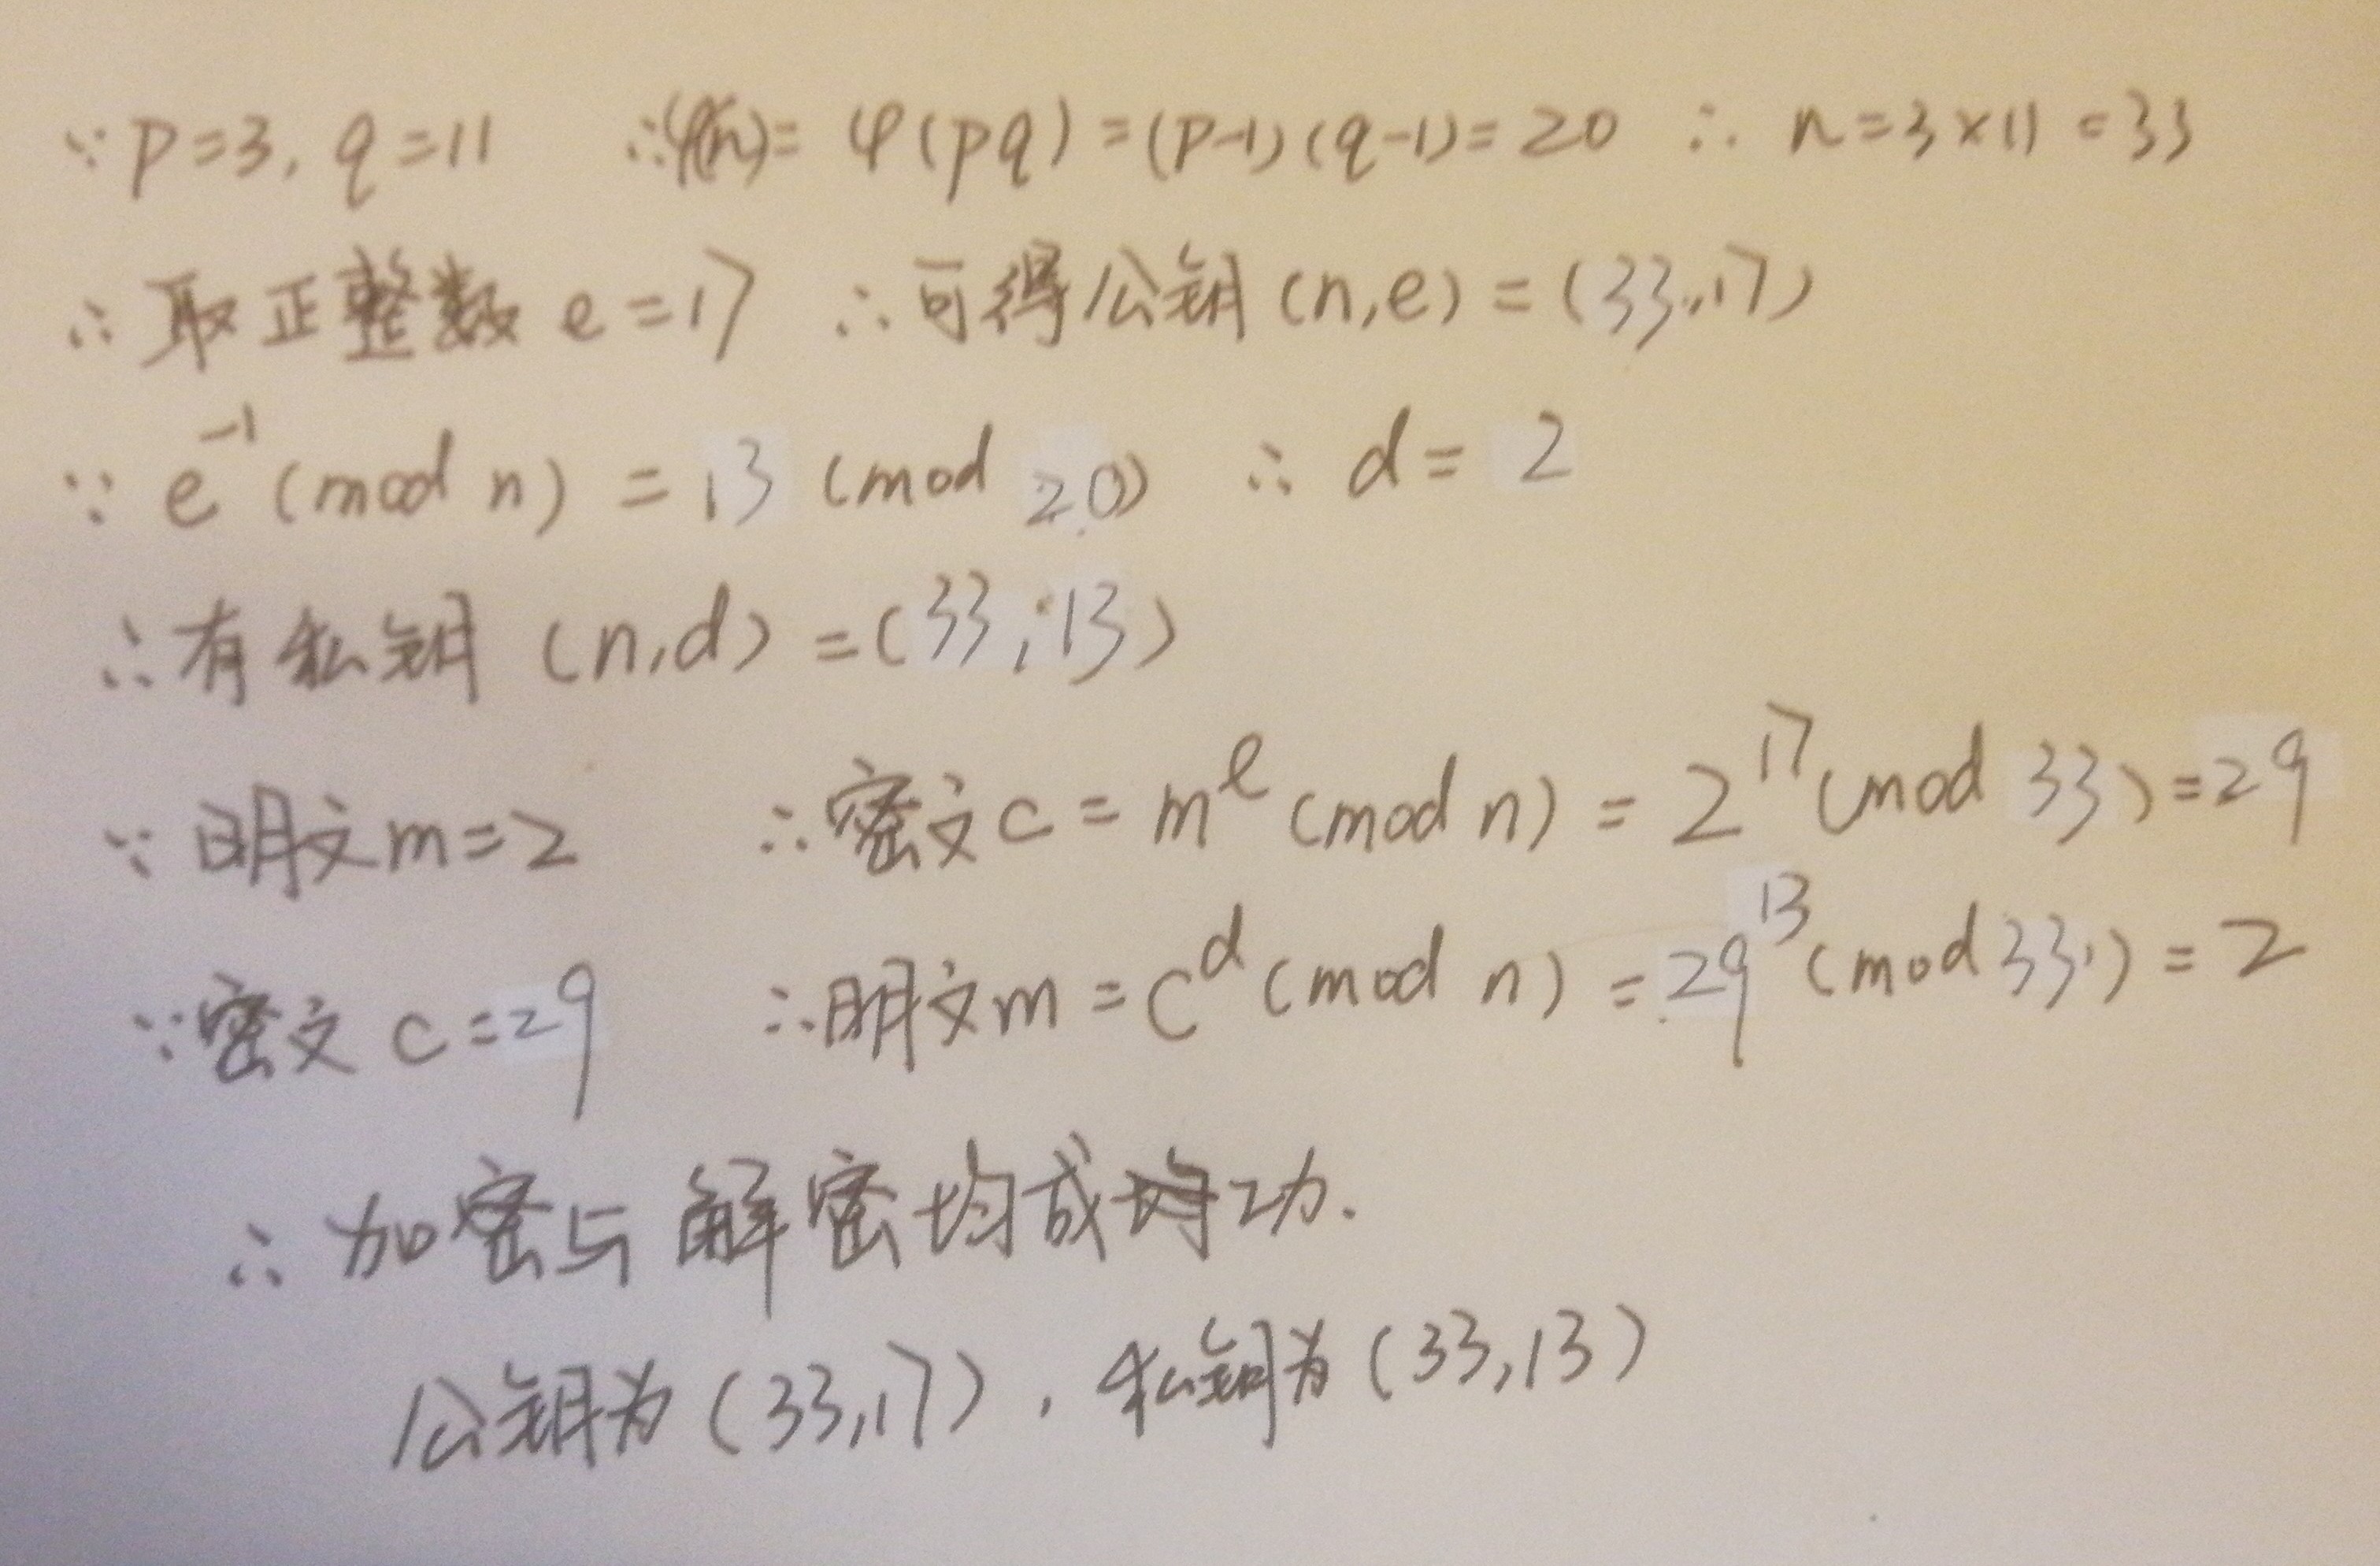 ∵ p=3, q=11 ∴ φ(n)= φ(pq)=(p-1)(q-1)=20 ∴ n=3×11=33
∴ 取正整数 e=17 ∴可得公钥(n,e)=(33,17)
∵ e⁻¹(mod n) = 13 (mod 20) ∴ d= 2
∴有私钥 (n,d)=(33,13)
∵ 明文m=2 ∴密文c=mᵉ(mod n)=2¹⁷(mod 33)=29
∵密文 c=29 ∴明文m=cᵈ(mod n)=29¹³(mod 33)=2
∴ 加密与解密均成功.
公钥为(33,17), 私钥为(33,13)